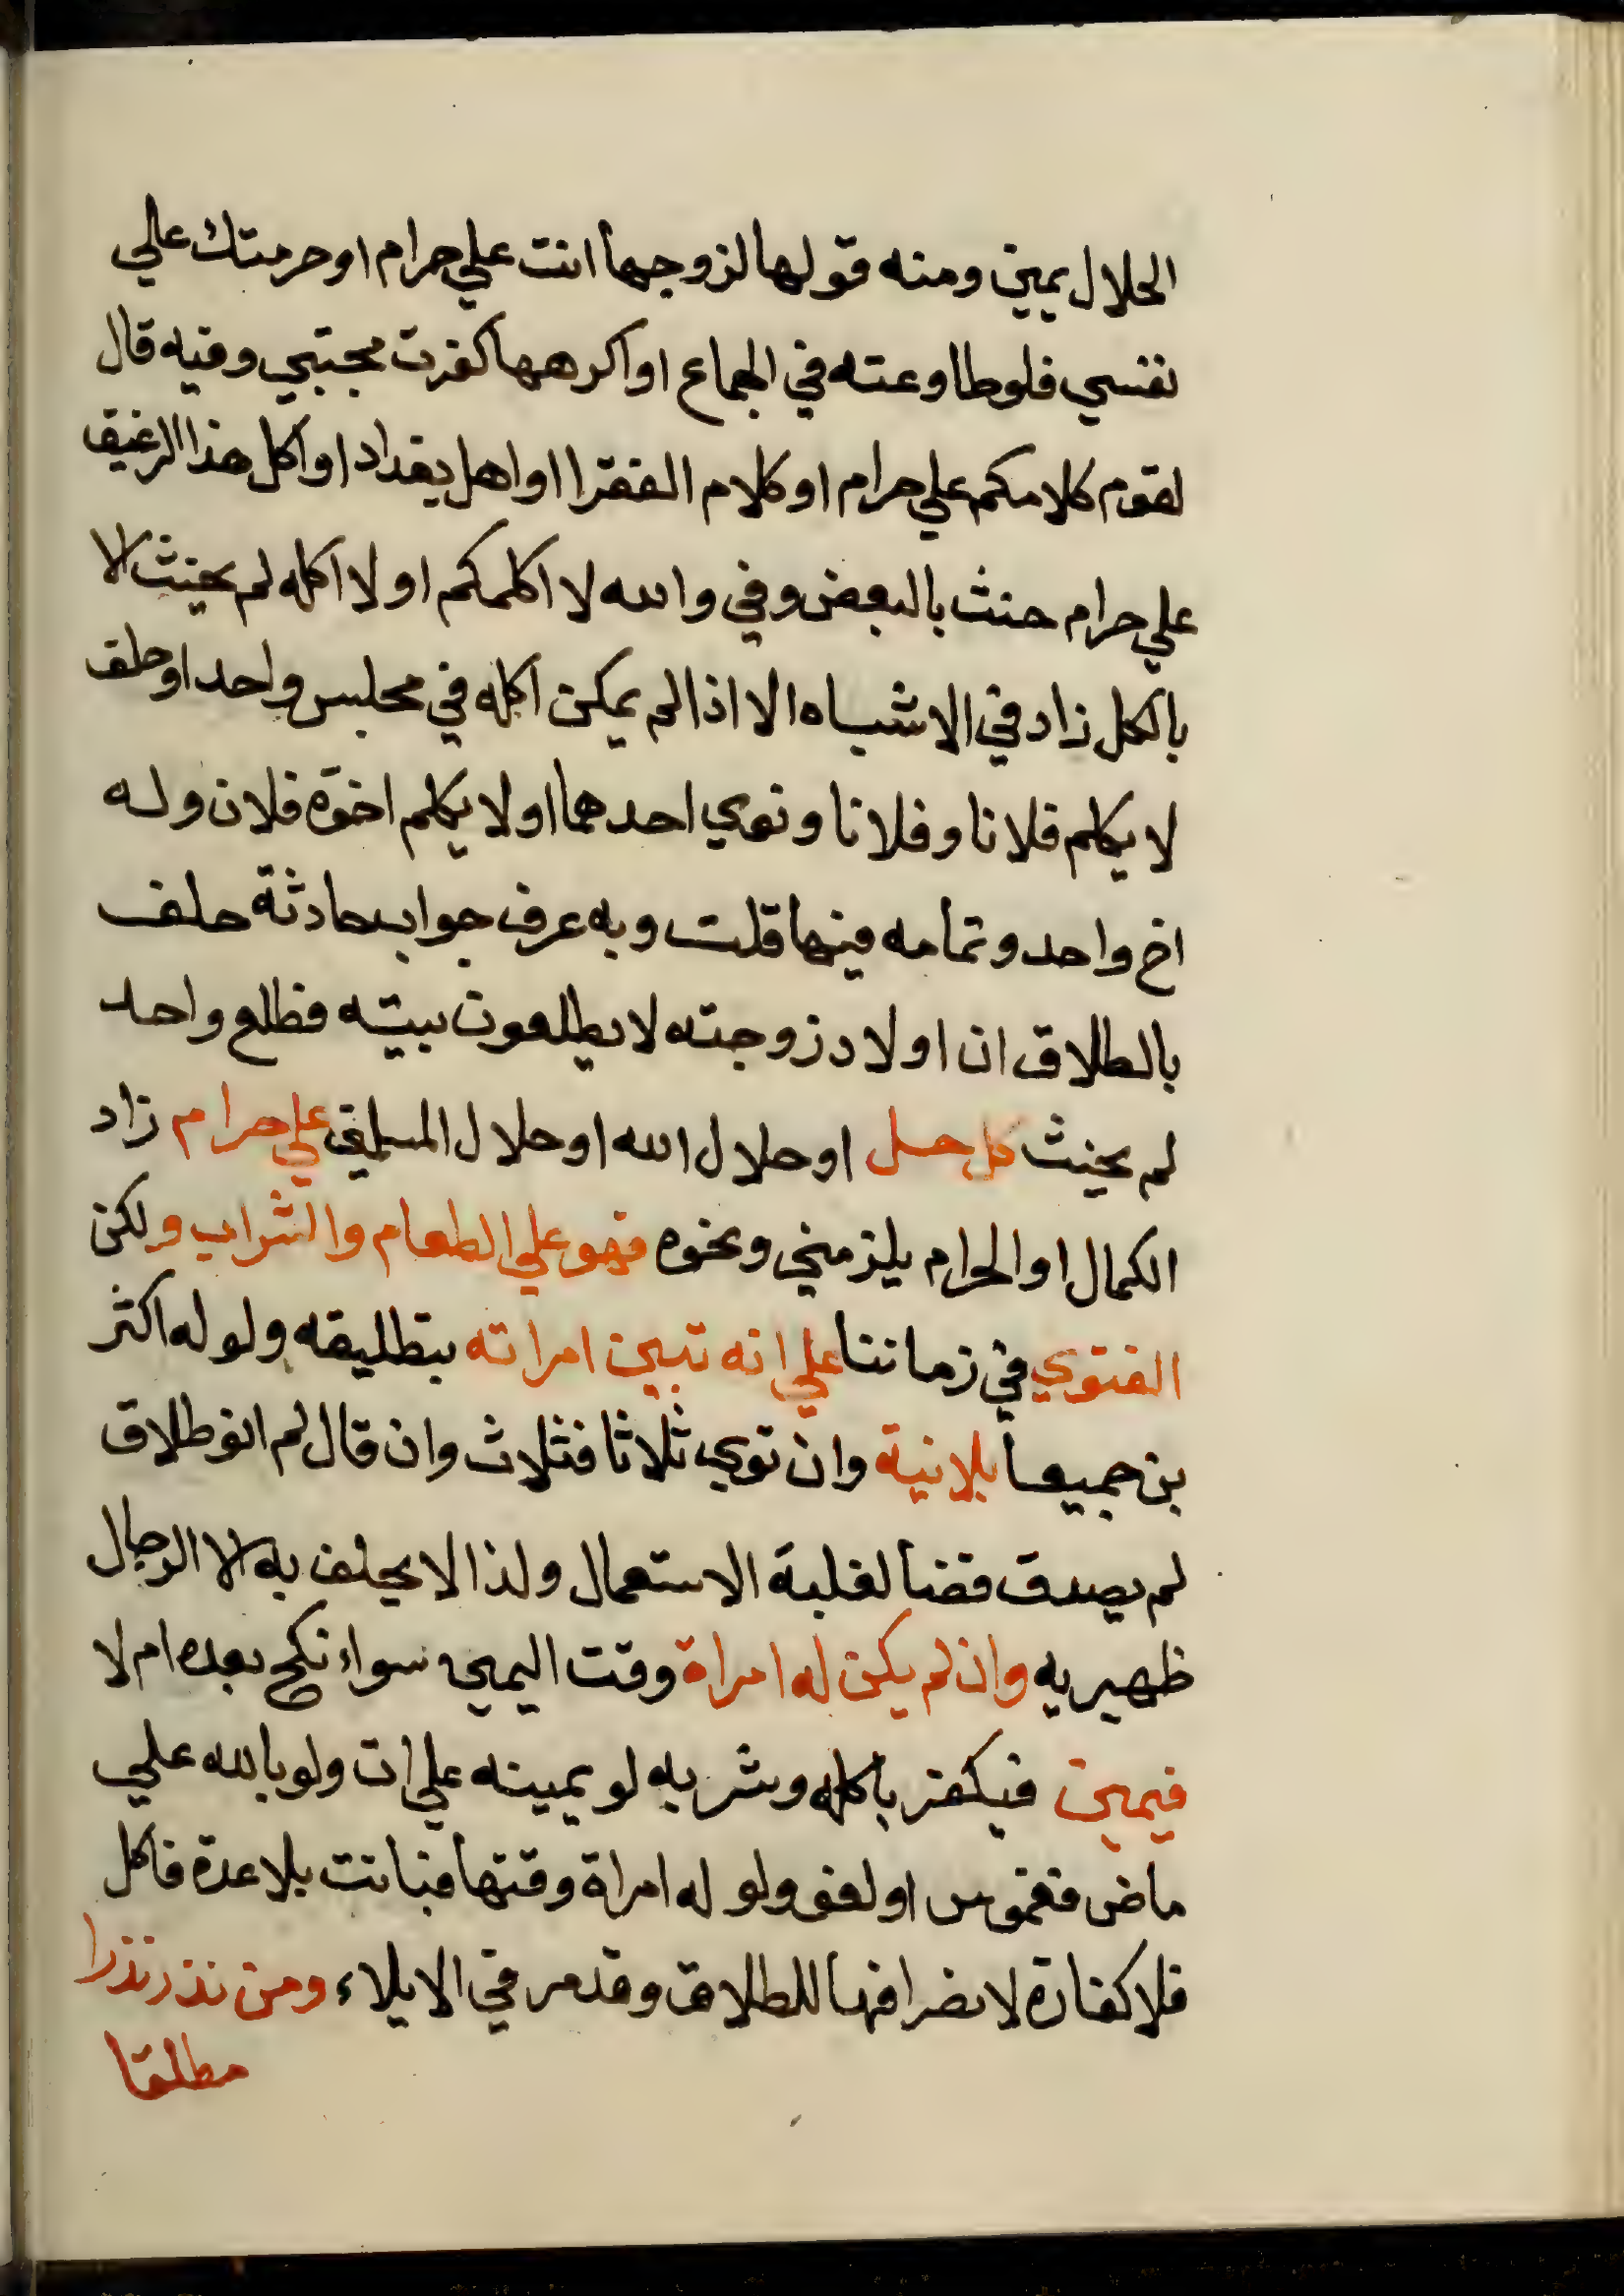 الحلال يمين ومنه قولها لزوجها انت علي حرام او حرمتك علي
نفسي فلو طاوعته في الجماع او اكرهها كفرت مجتبي وفيه قال
لقوم كلامكم علي حرام او كلام الفقرا او اهل بغداد او اكل هذا الرغيف
علي حرام حنث بالبعض وفي والله لا اكلمكم او لا اكله لم يحنث الا
بالكل زاد في الاشباه الا اذا لم يمكن اكله في مجلس واحد او حلف
لا يكلم فلانا وفلانا ونوي احدهما او لا يكلم اخوة فلان وله
اخ واحد وتمامه فيها قلت وبه عرف جواب حادثة حلف
بالطلاق ان اولاد زوجته لا يطلعون بيته فطلع واحد
لم يحنث كل حل او حلال الله او حلال المسلمين علي حرام زاد
الكمال او الحرام يلزمني ونحوه فهو علي الطعام والشراب ولكن
الفتوي في زماننا علي انه تبين امراته بتطليقه ولو له اكثر
بن جميعا بلا نية وان نوي ثلاثا فثلاث وان قال لم انو طلاق
لم يصدق قضا لغلبة الاستعمال ولذا لا يحلف به الا الرجال
ظهيريه وان لم يكن له امراة وقت اليمين سواء نكح بعده ام لا
فيمين فيكفر باكله وشربه لو يمينه علي ات ولو بالله علي
ماض فغموس او لغو ولو له امراة وقتها فبانت بلا عدة فاكل
فلا كفارة لانصرافها للطلاق وقد مر في الايلاء ومن نذر نذرا
مطلقا